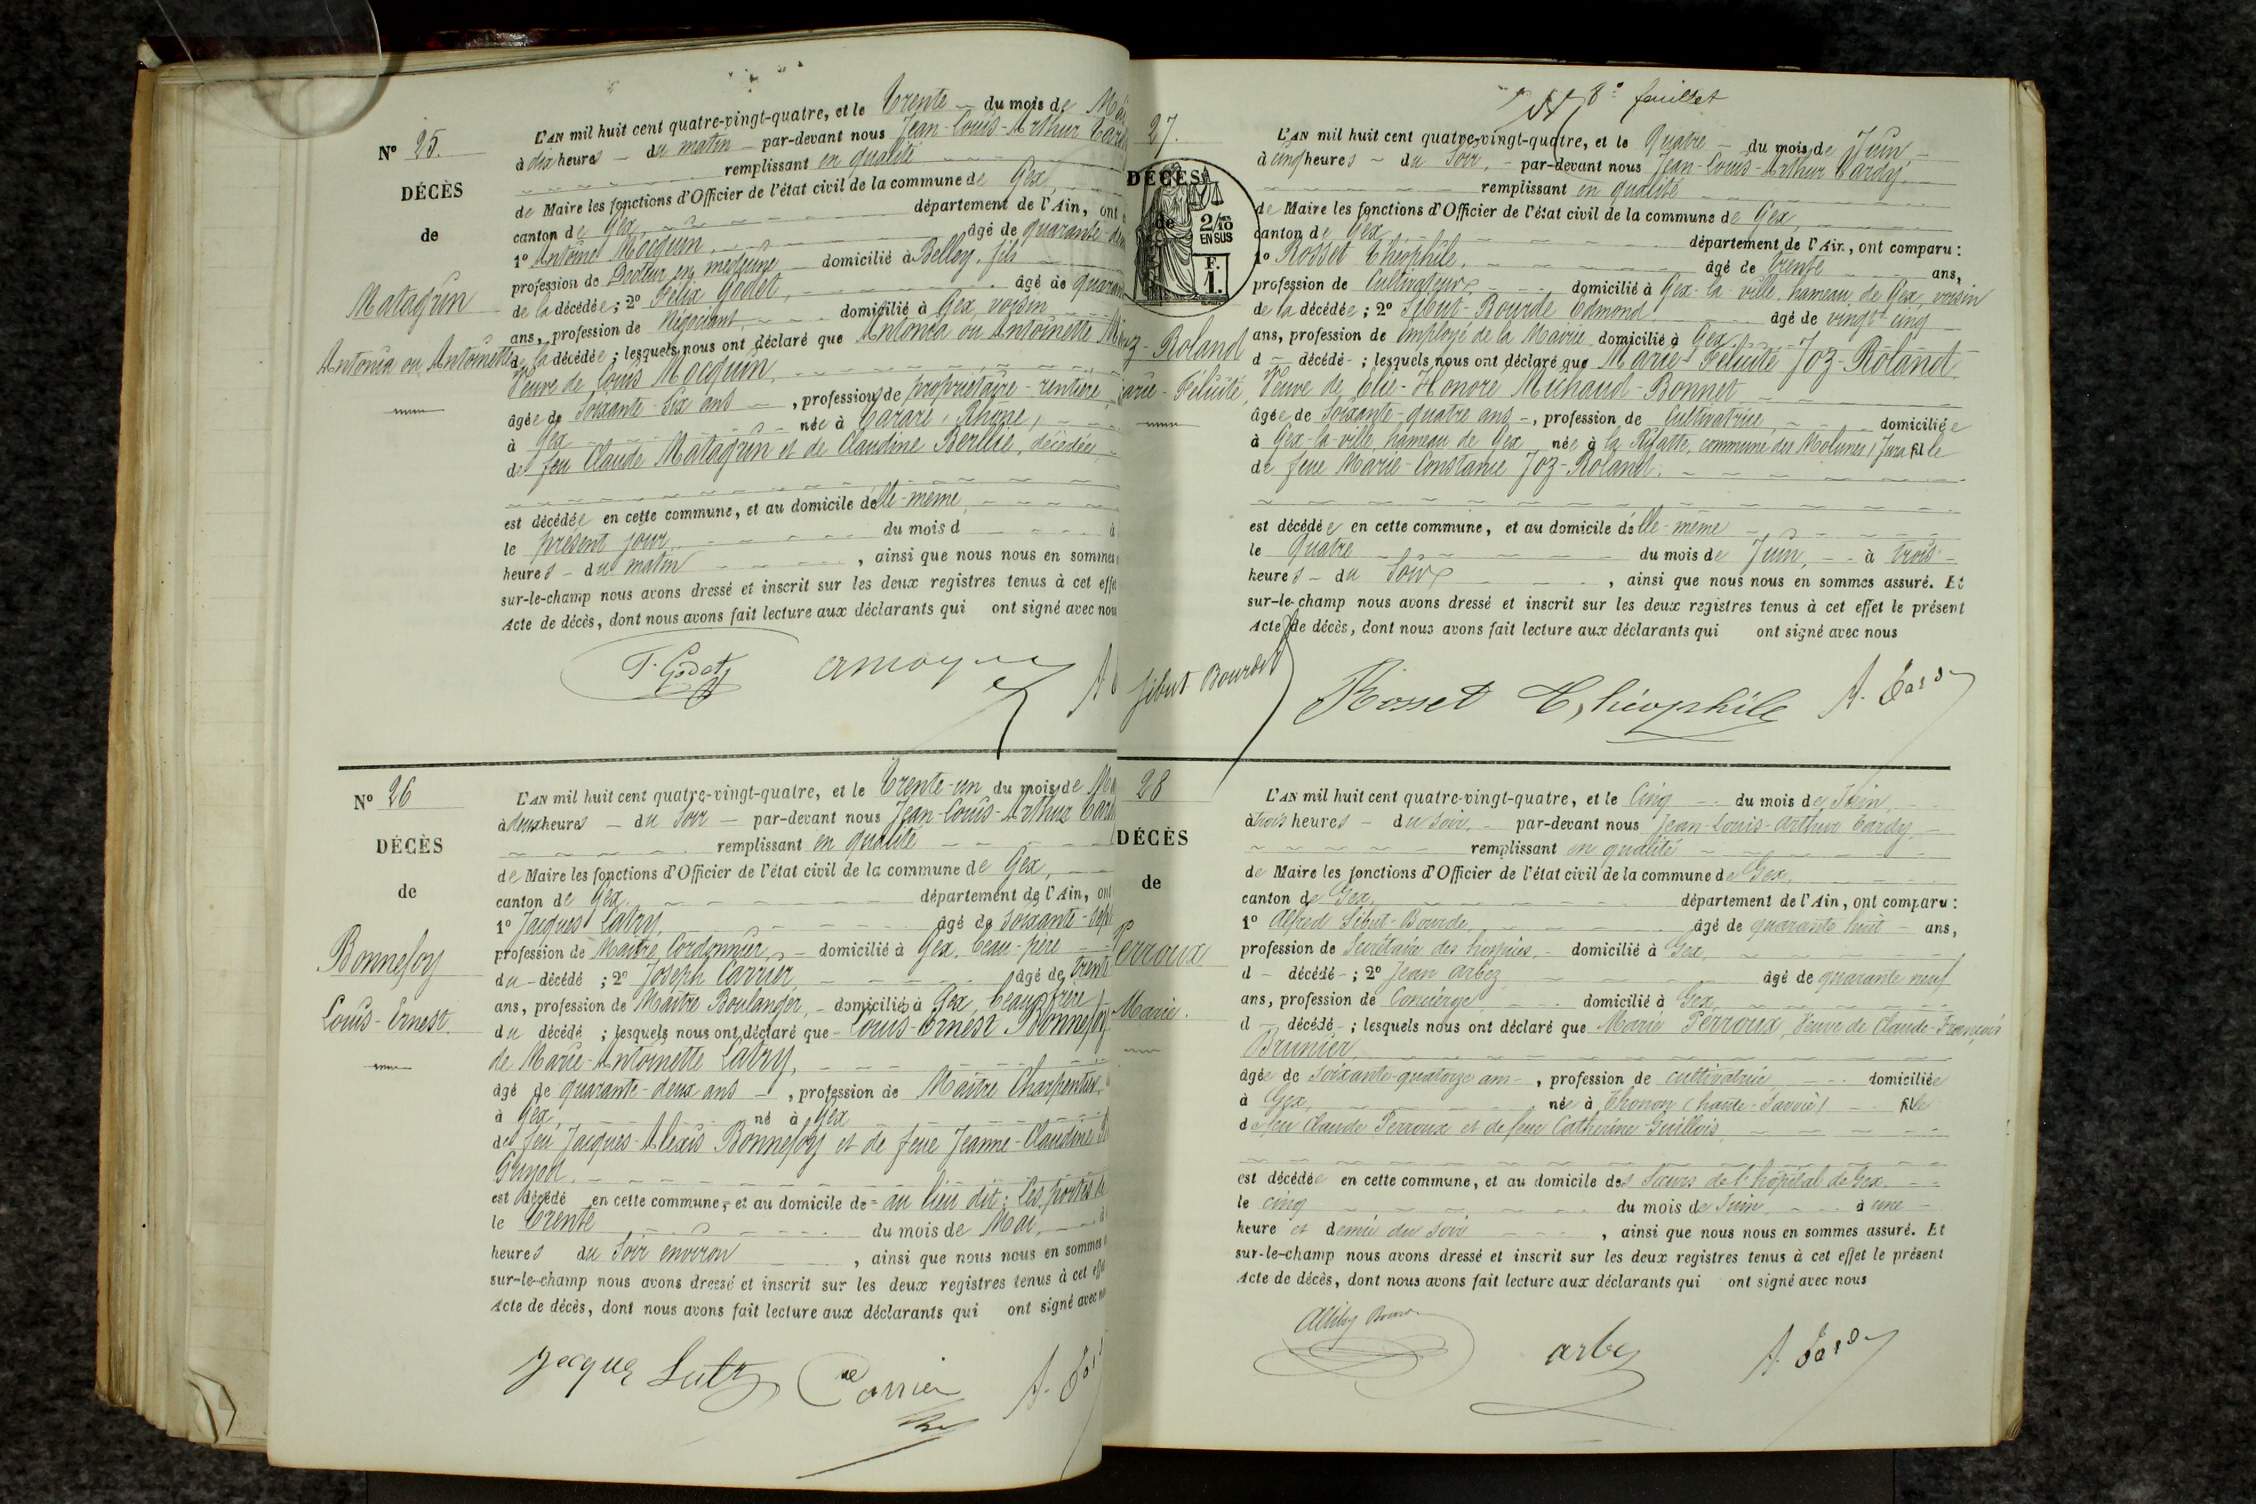 N° 25.
DÉCÈS
de
Matagrin
Antonia ou Antoinette
L'AN mil huit cent quatre-vingt-quatre, et le Trente du mois de Mai
à dix heures du matin par-devant nous Jean-Louis-Arthur
remplissant en qualité
de Maire les fonctions d'Officier de l'état civil de la commune de Gex,
canton de Gex, département de l'Ain, ont
1° Antoine Mocquin, âgé de quarante-
profession de Docteur en médecine domicilié à Belley, fils
de la décédée; 2° Félix Godet, âgé de
ans, profession de Négociant, domicilié à Gex, voisin
de la décédée; lesquels nous ont déclaré que Antonia ou Antoinette
Veuve de Louis Mocquin,
âgée de soixante-six ans, profession de propriétaire-rentière,
à Gex née à Tarare (Rhône)
de feu Claude Matagrin et de Claudine, décédée
est décédée en cette commune, et au domicile d'elle-même,
le présent jour, du mois d à
heures du matin, ainsi que nous nous en sommes
sur-le-champ nous avons dressé et inscrit sur les deux registres tenus à cet
Acte de décès, dont nous avons fait lecture aux déclarants qui ont signé avec nous
F. Godet
N° 26
DÉCÈS
de
Bonnefoy
Louis-Ernest.
L'AN mil huit cent quatre-vingt-quatre, et le Trente-un du mois de
à deux heures du soir par-devant nous Jean-Louis-Arthur
remplissant en qualité
de Maire les fonctions d'Officier de l'état civil de la commune de Gex,
canton de Gex, département de l'Ain, ont
1° Jacques Lutry, âgé de soixante-sept
profession de Maître Cordonnier, domicilié à Gex, beau-père
du décédé; 2° Joseph Carrier, âgé de trente
ans, profession de Maître Boulanger, domicilié à Gex, beau-frère
du décédé; lesquels nous ont déclaré que Louis-Ernest Bonnefoy
de Marie-Antoinette Lutry,
âgé de quarante-deux ans, profession de Maître Charpentier,
à Gex, né à Gex
de feu Jacques-Alexis Bonnefoy et de feue Jeanne-Claudine
est décédé en cette commune, et au domicile de au lieu dit: Les portes
le Trente du mois de Mai,
heures du soir environ, ainsi que nous nous en sommes
sur-le-champ nous avons dressé et inscrit sur les deux registres tenus à cet
Acte de décès, dont nous avons fait lecture aux déclarants qui ont signé avec
Carrier
8° feuillet
27.
DÉCÈS
de
2/10
EN SUS
F.
1.
Joz-Roland
Marie-Félicité,
L'AN mil huit cent quatre-vingt-quatre, et le Quatre du mois de Juin,
à cinq heures du soir, par-devant nous Jean-Louis-Arthur Tardy,
remplissant en qualité
de Maire les fonctions d'Officier de l'état civil de la commune de Gex,
canton de Gex, département de l'Ain, ont comparu:
1° Rosset Théophile, âgé de trente ans,
profession de Cultivateur, domicilié à Gex-la-ville, hameau de Gex, voisin
de la décédée; 2° Sibut-Bourde Edmond âgé de vingt-cinq
ans, profession de employé de la Mairie domicilié à Gex,
d décédé; lesquels nous ont déclaré que Marie-Félicité Joz-Roland
Veuve de Elie-Honoré Michaud-Bonnet
âgée de soixante-quatre ans, profession de Cultivatrice, domiciliée
à Gex-la-ville, hameau de Gex née à la commune des Molunes (Jura fille
de feue Marie-Constance Joz-Roland.
est décédée en cette commune, et au domicile d'elle-même
le Quatre du mois de Juin, à trois
heures du soir, ainsi que nous nous en sommes assuré. Et
sur-le-champ nous avons dressé et inscrit sur les deux registres tenus à cet effet le présent
Acte de décès, dont nous avons fait lecture aux déclarants qui ont signé avec nous
Sibut Bourde Rosset Théophile A. Tardy
28
DÉCÈS
de
Perroux
Marie.
L'AN mil huit cent quatre-vingt-quatre, et le Cinq du mois de Juin,
à trois heures du soir, par-devant nous Jean-Louis-Arthur Tardy,
remplissant en qualité
de Maire les fonctions d'Officier de l'état civil de la commune de Gex,
canton de Gex, département de l'Ain, ont comparu:
1° Alfred Sibut-Bourde, âgé de quarante huit ans,
profession de Secrétaire des hospices, domicilié à Gex,
d décédé; 2° Jean Arbez âgé de quarante neuf
ans, profession de Concierge domicilié à Gex,
d décédé; lesquels nous ont déclaré que Marie Perroux, Veuve de Claude-François
Brunier,
âgée de soixante-quatorze ans, profession de cultivatrice domiciliée
à Gex, née à Thonon (haute-Savoie) fille
de feu Claude Perroux et de feue Catherine Guillois
est décédée en cette commune, et au domicile des Sœurs de l'hôpital de Gex
le cinq du mois de Juin, à une
heure et demie du soir, ainsi que nous nous en sommes assuré. Et
sur-le-champ nous avons dressé et inscrit sur les deux registres tenus à cet effet le présent
Acte de décès, dont nous avons fait lecture aux déclarants qui ont signé avec nous
arbez A. Tardy